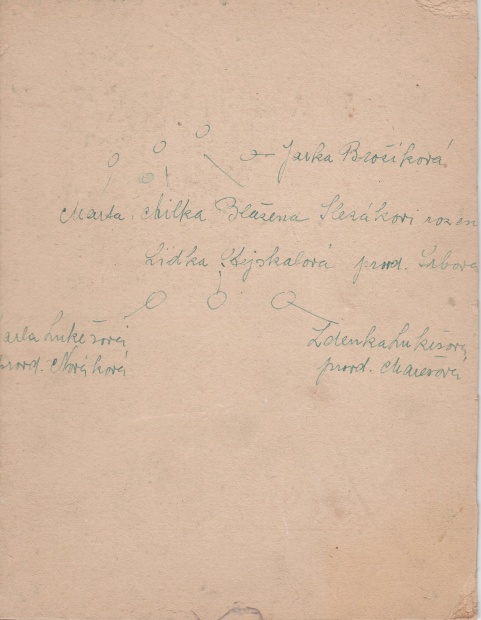 Jarka Brožíková
Marta, Milka Blažena Slezákovi rozen
Lidka Stýskalová provd.
arla Lukešová
provd. Nováková
Zdenka Lukešová
provd. Marešová